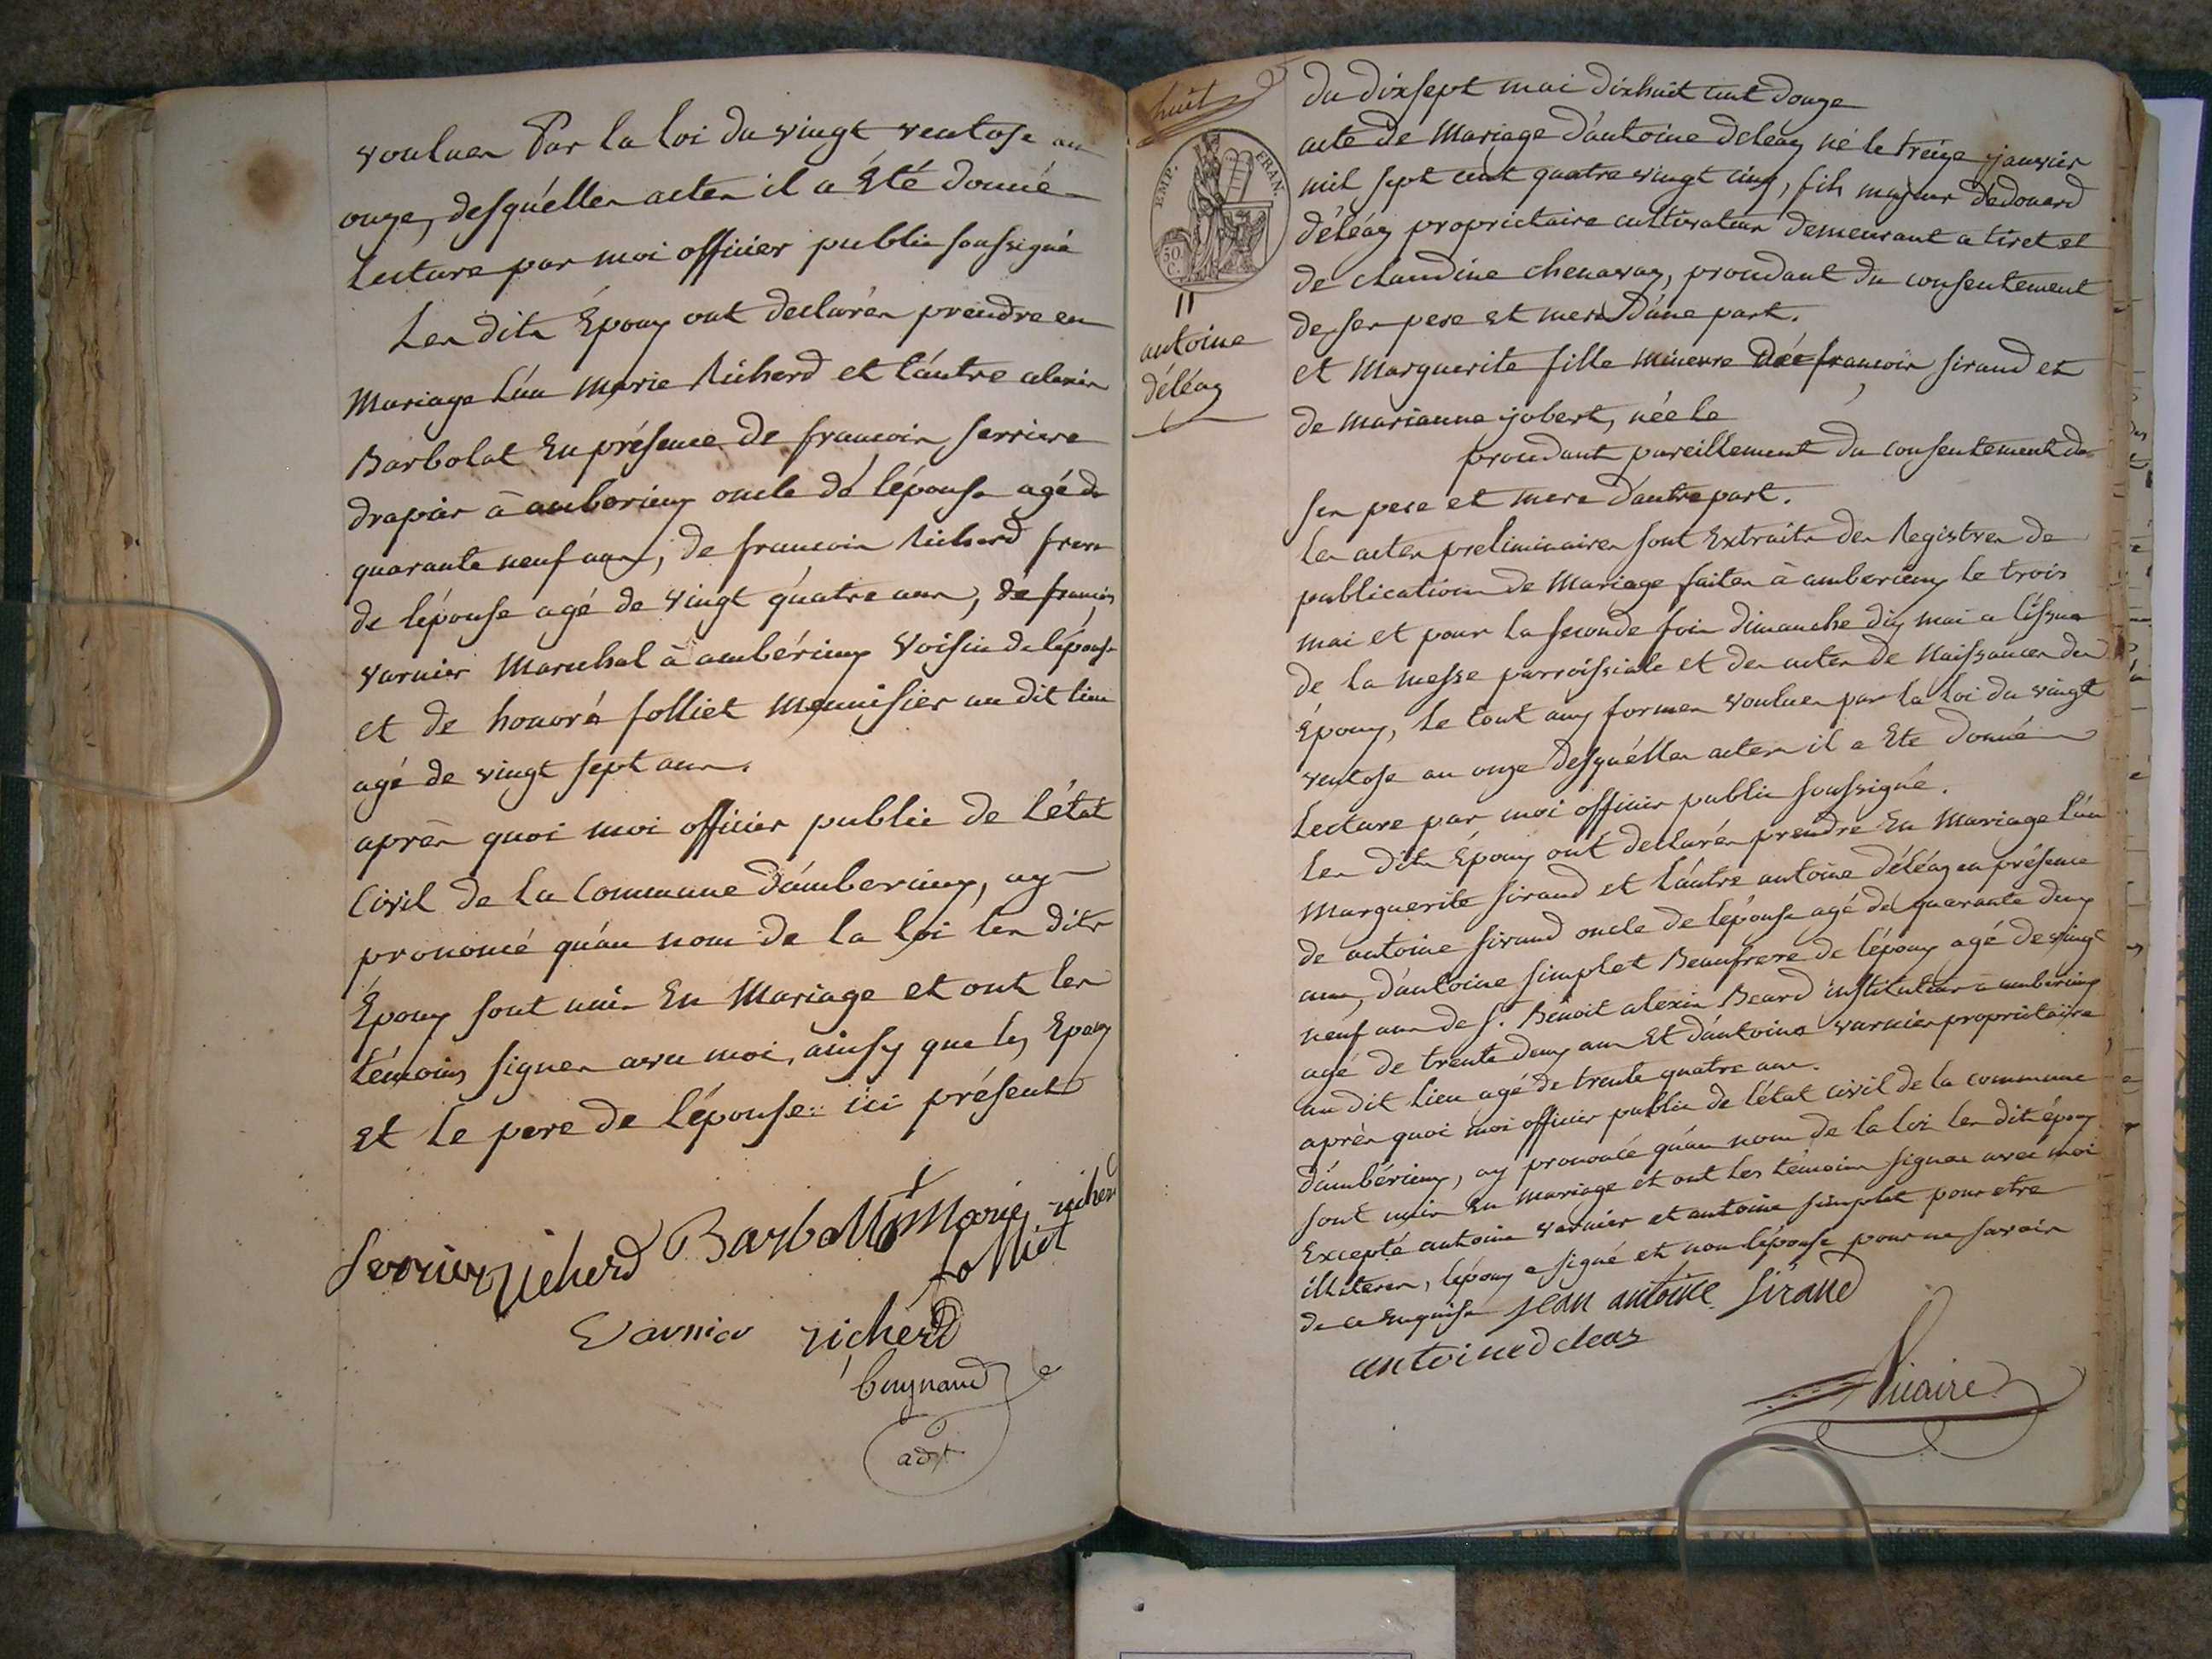 voulues Par la loi du vingt ventose an
onze, desquélles actes il a Eté donné
Lecture par moi officier public soussigné
Les dits Époux ont declarés prendre en
Mariage L'un Marie Richerd et l'autre alexis
Barbolat En présence de francois serriere
drapier à amberieux oncle de l'épouse agé de
quarante neuf ans, de francois Richerd frere
de l'épouse agé de vingt quatre ans, de francois
varnier Marechal à ambérieux voisin de l'épouse
et de honoré folliet menuisier au dit lieu
agé de vingt sept ans.
après quoi moi officier public de l'état
Civil de la Commune d'amberieux, ay
prononcé qu'au nom de la loi les dits
Époux sont unis En Mariage et ont les
témoins signer avec moi, ainsy que les Epoux
et le pere de l'épouse ici présents
serrier richerd Barbollat Marie richerd
folliet
Varnier richerd
buynand
adjt
huit
EMP. FRAN.
50 C.
11
antoine
déléaz
du dixsept mai dixhuit cent douze
acte de Mariage d'antoine deleaz né le treize janvier
mil sept cent quatre vingt cinq, fils majeur dedouard
déléaz proprietaire cultivateur demeurant a tiret et
de claudine chenavaz, procedant du consentement
de ses pere et mere d'une part.
et Marguerite fille mineure de francois sirand et
de marianne jobert, née le
procedant pareillement du consentement de
ses pere et mere d'autre part.
les actes preliminaires sont Extraits des Registres de
publication de Mariage faites à amberieux le trois
mai et pour la seconde fois dimanche dix mai a l'issue
de la messe parroissiale et des actes de Naissances des
Époux, le tout aux formes voulues par la loi du vingt
ventose an onze desquélles actes il a Eté donné
Lecture par moi officier public soussigné.
les dits Époux ont declarés prendre En Mariage l'un
Marguerite sirand et l'autre antoine déléaz en présence
de antoine sirand oncle de l'épouse agé de quarante deux
ans, d'antoine simplet Beaufrere de l'époux agé de vingt
neuf ans de s.r Benoit alexis Beard instituteur à ambérieux
agé de trente deux ans Et d'antoine varnier propriétaire
au dit lieu agé de trente quatre ans.
après quoi moi officier public de l'état civil de la commune
d'ambérieux, ay prononcé qu'au nom de la loi les dit époux
sont unis En mariage et ont les témoins signer avec moi
Excepté antoine varnier et antoine simplet pour etre
illiteres, l'époux a signé et non l'épouse pour ne savoir
de ce Enquise jean antoine sirand
antoine deleaz